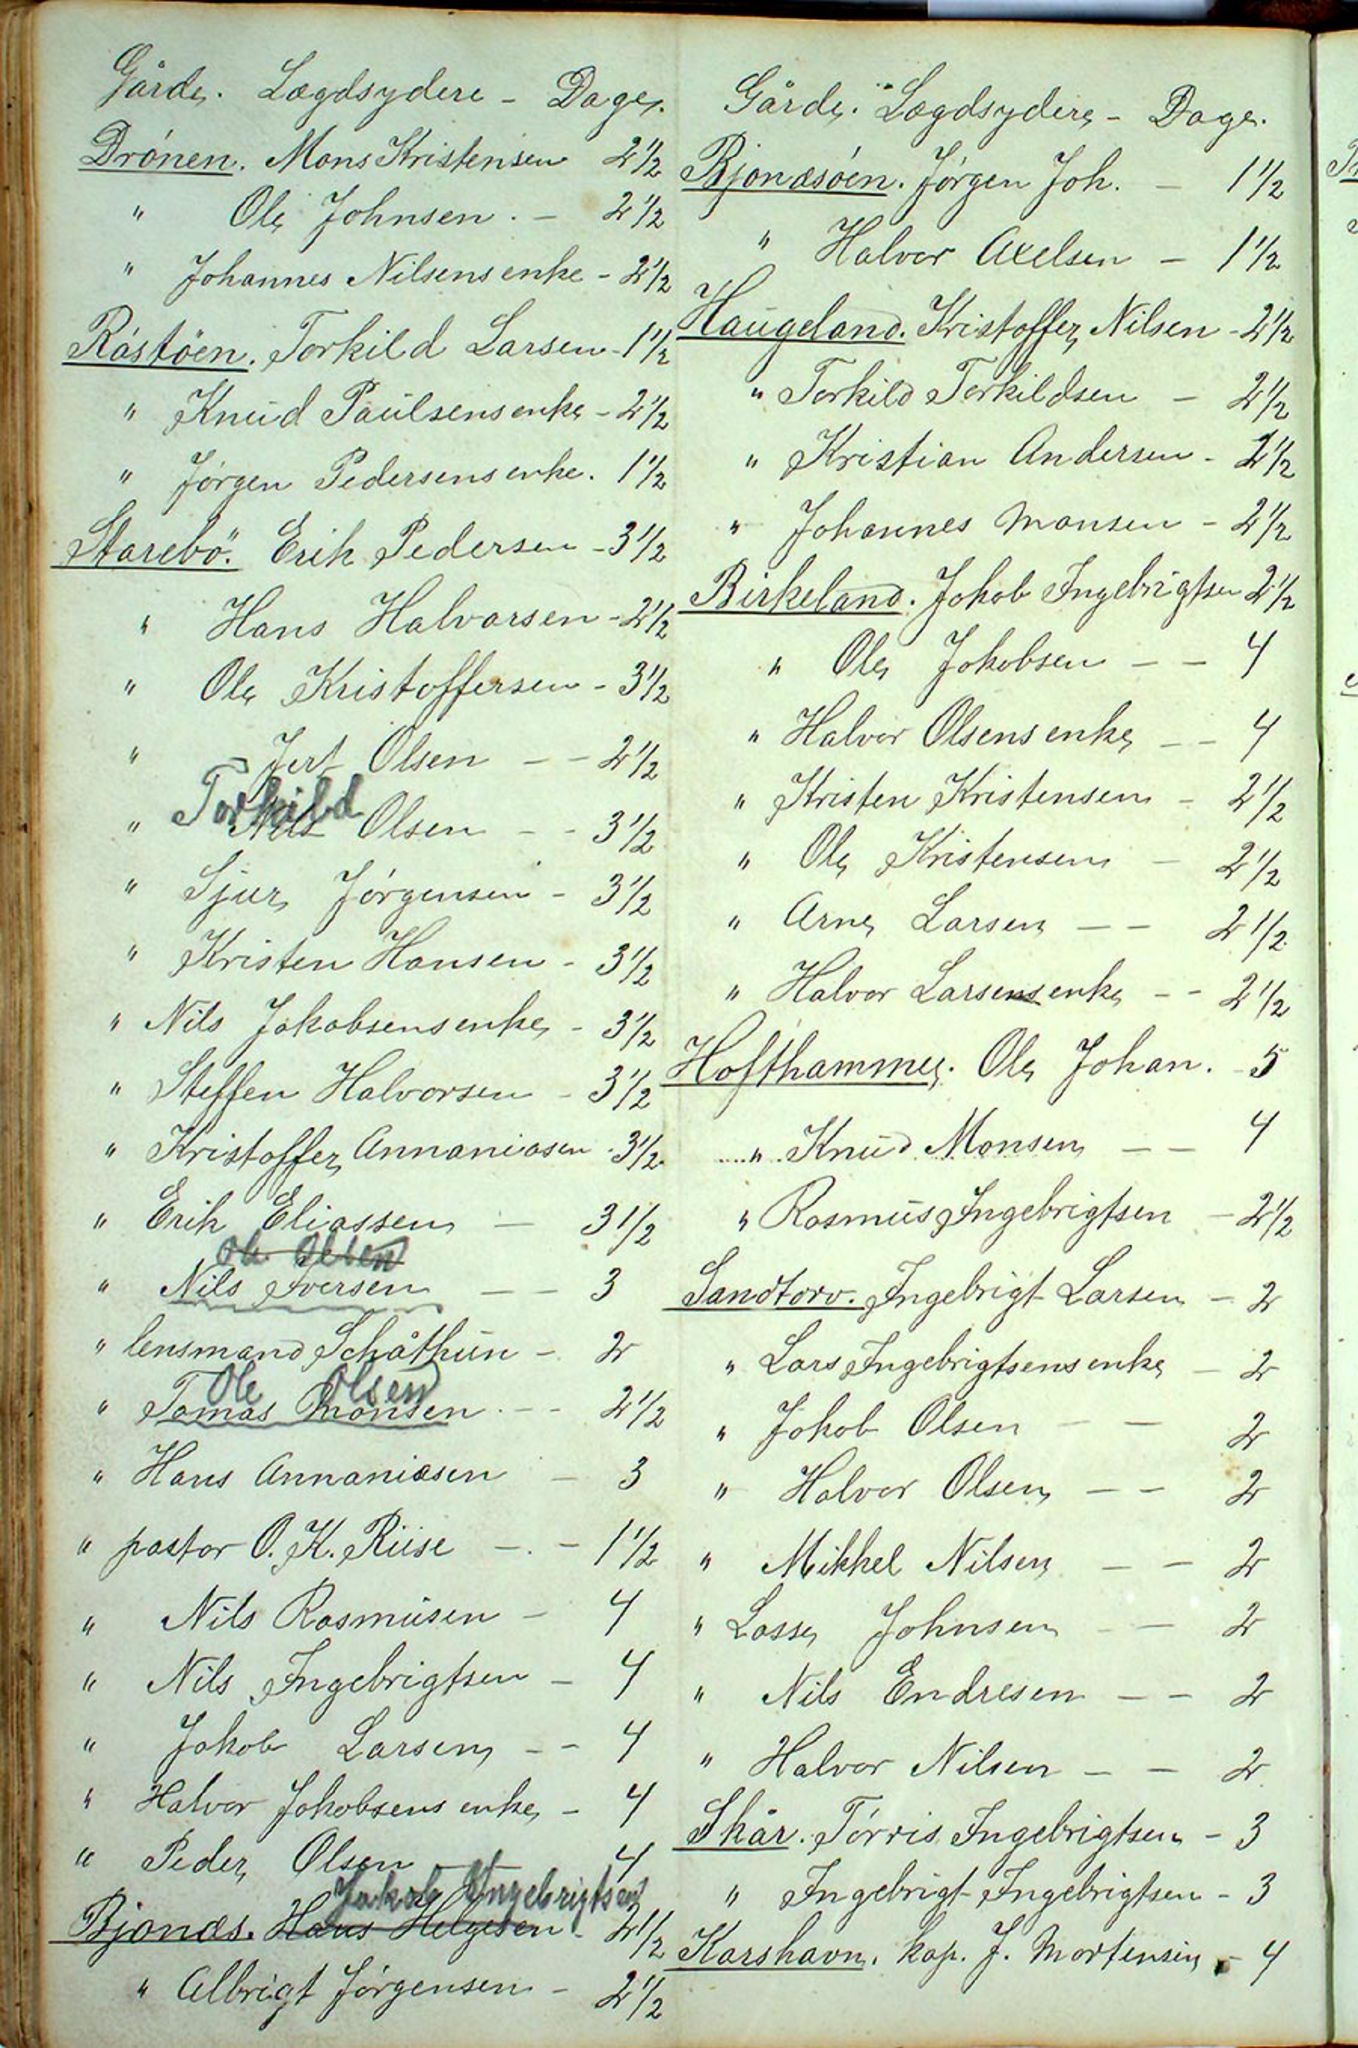 Gårde. Lægdsydere - Dage.
Drønen. Mons Kristensen 2 1/2
" Ole Johnsen. - 2 1/2
" Johannes Nilsens enke - 2 1/2
Råstöen. Torkild Larsen - 1 1/2
" Knud Paulsens enke - 2 1/2
" Jørgen Pedersens enke. 1 1/2
Starebö. Erik Pedersen - 3 1/2
" Hans Halvorsen - 2 1/2
" Ole Kristoffersen - 3 1/2
" Jert Olsen - - 2 1/2
Torkild
" Nils Olsen - - 3 1/2
" Sjur Jørgensen - 3 1/2
" Kristen Hansen - 3 1/2
" Nils Jakobsens enke - 3 1/2
" Steffen Halvorsen - 3 1/2
" Kristoffer Annaniasen - 3 1/2
" Erik Eliassen - 3 1/2
Ole Olsen
" Nils Iversen - - 3
" lensmand Schåthun - 2
Ole Olsen
" Tomas Monsen. - - 2 1/2
" Hans Annaniasen - 3
" pastor O. K. Riise - . - 1 1/2
" Nils Rasmusen - 4
" Nils Ingebrigtsen - 4
" Jakob Larsen - - 4
" Halvor Jakobsens enke - 4
" Peder Olsen - - 4
Jakob Ingebrigtsen
Bjonæs. Hans Helgesen - 2 1/2
" Albrigt Jørgensen - 2 1/2
Gårde. Lægdsydere - Dage.
Bjonæsöen. Jørgen Joh. - 1 1/2
" Halvor Axelsen - 1 1/2
Haugeland. Kristoffer Nilsen - 2 1/2
" Torkild Torkildsen - 2 1/2
" Kristian Andersen - 2 1/2
" Johannes Monsen - 2 1/2
Birkeland. Jakob Ingebrigtsen 2 1/2
" Ole Jakobsen - - 4
" Halvor Olsens enke - - 4
" Kristen Kristensen - 2 1/2
" Ole Kristensen - 2 1/2
" Arne Larsen - - 2 1/2
" Halvor Larsens enke - - 2 1/2
Hofthammer. Ole Johan. - 5
" Knud Monsen - - 4
" Rasmus Ingebrigtsen - 2 1/2
Sandtorv. Ingebrigt Larsen - 2
" Lars Ingebrigtsens enke - 2
" Jakob Olsen - - 2
" Halvor Olsen - - 2
" Mikkel Nilsen - - 2
" Lasse Johnsen - - 2
" Nils Endresen - - 2
" Halvor Nilsen - - 2
Skår. Tørris Ingebrigtsen - 3
" Ingebrigt Ingebrigtsen - 3
Karshavn. kap. J. Mortensen - 4